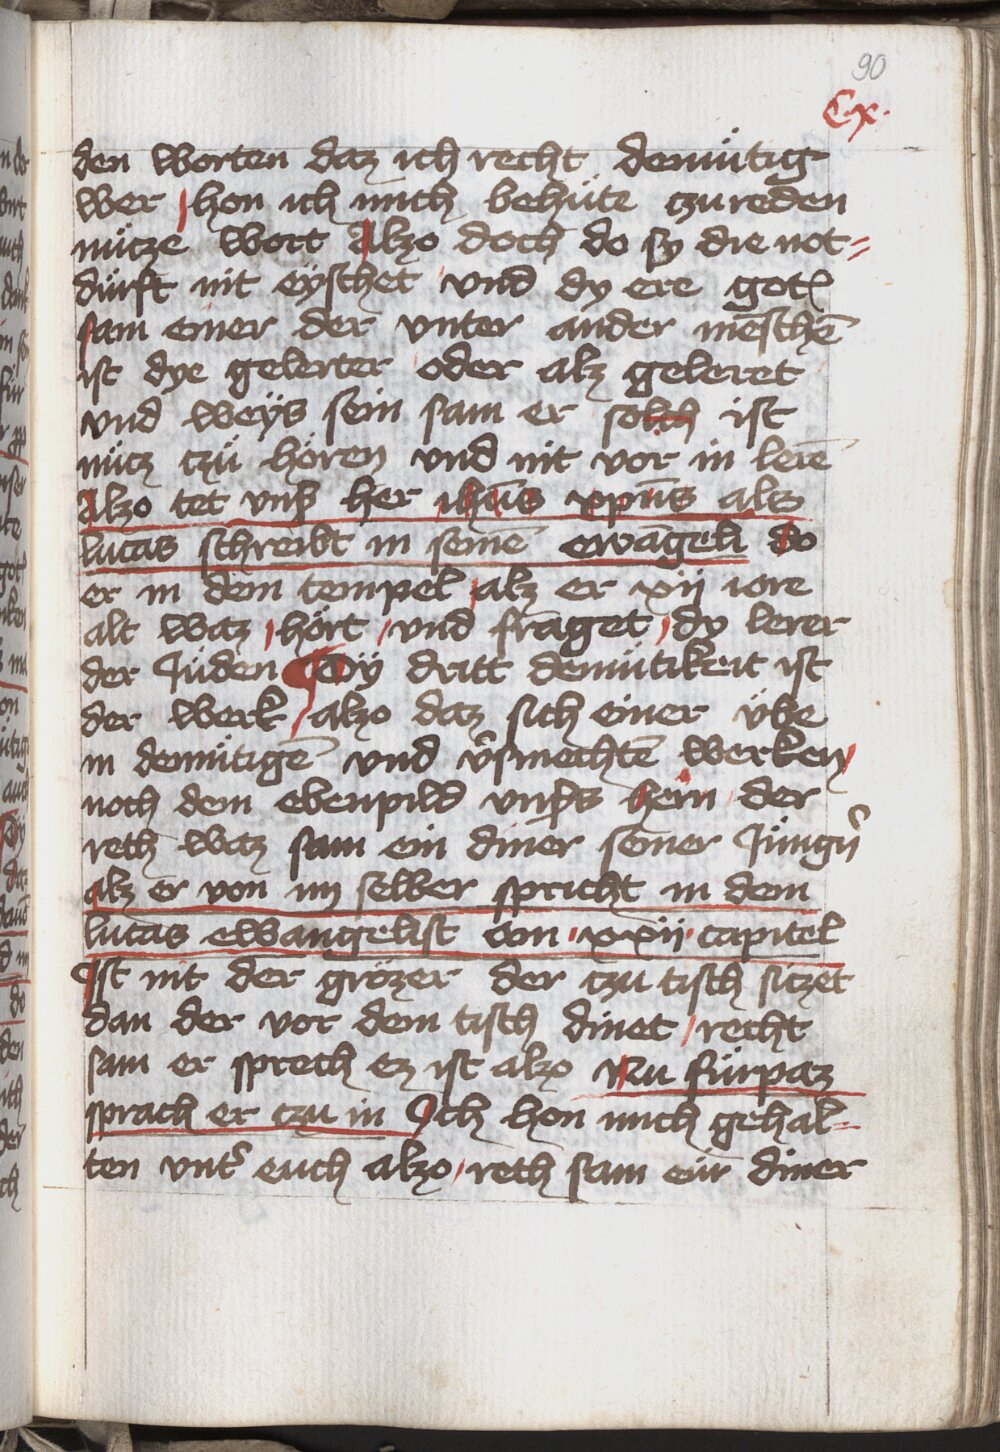 90
Cx.
den worten daz ich recht demütig
wer hon ich mich behüte czu reden
nücze wort Alzo doch do sy die not=
dürft nit eyschet und dy ere got
sam einer der vnter ander meschē
ist dye gelerter oder alz geleret
vnd weys sein sam er solch ist
nücz czü hören vnd nit vor in lerē
Alzo tet vnß her ihūs xpūs als
lucas schreibt in seinē ewāgeli do
er in dem tempel alz er xij iore
alt waz hört vnd fraget dy lerer
der Jüden Dÿ dritt demütikeit ist
der werk alzo daz sich einer übe
in demütigē vnd v̄smechtē werken
noch dem ebenpild vnßs hern der
reth waz sam ein diner seiner Jüngn̄
alz er von im selber spricht in dem
lucas ewangelist von xxij capitel
Ist nit der grözer der czu tisch siczet
dan der vor dem tisch dinet recht
sam er sprech ez ist alzo Nu fürpaz
sprach er czu in Ich hon mich gehal=
ten vnt̄ euch alzo reth sam eür diner